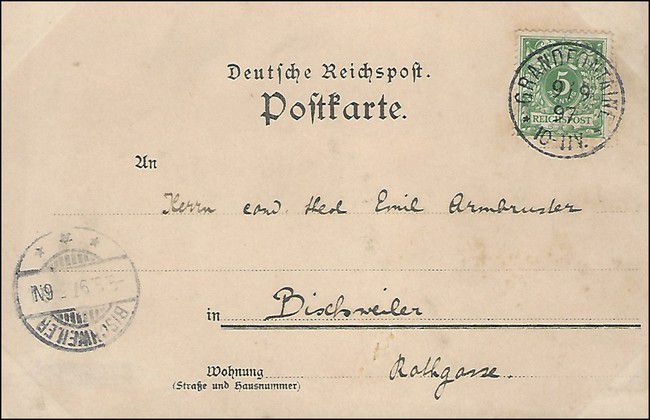 Deutsche Reichspost.
Postkarte.
5
REICHSPOST
* GRANDFONTAINE
9 9
97
10-11V.
An
Herrn cand. theol Emil Armbruster
in Bischweiler
Wohnung Rothgasse.
(Straße und Hausnummer)
BISCHWEILER
97
6N